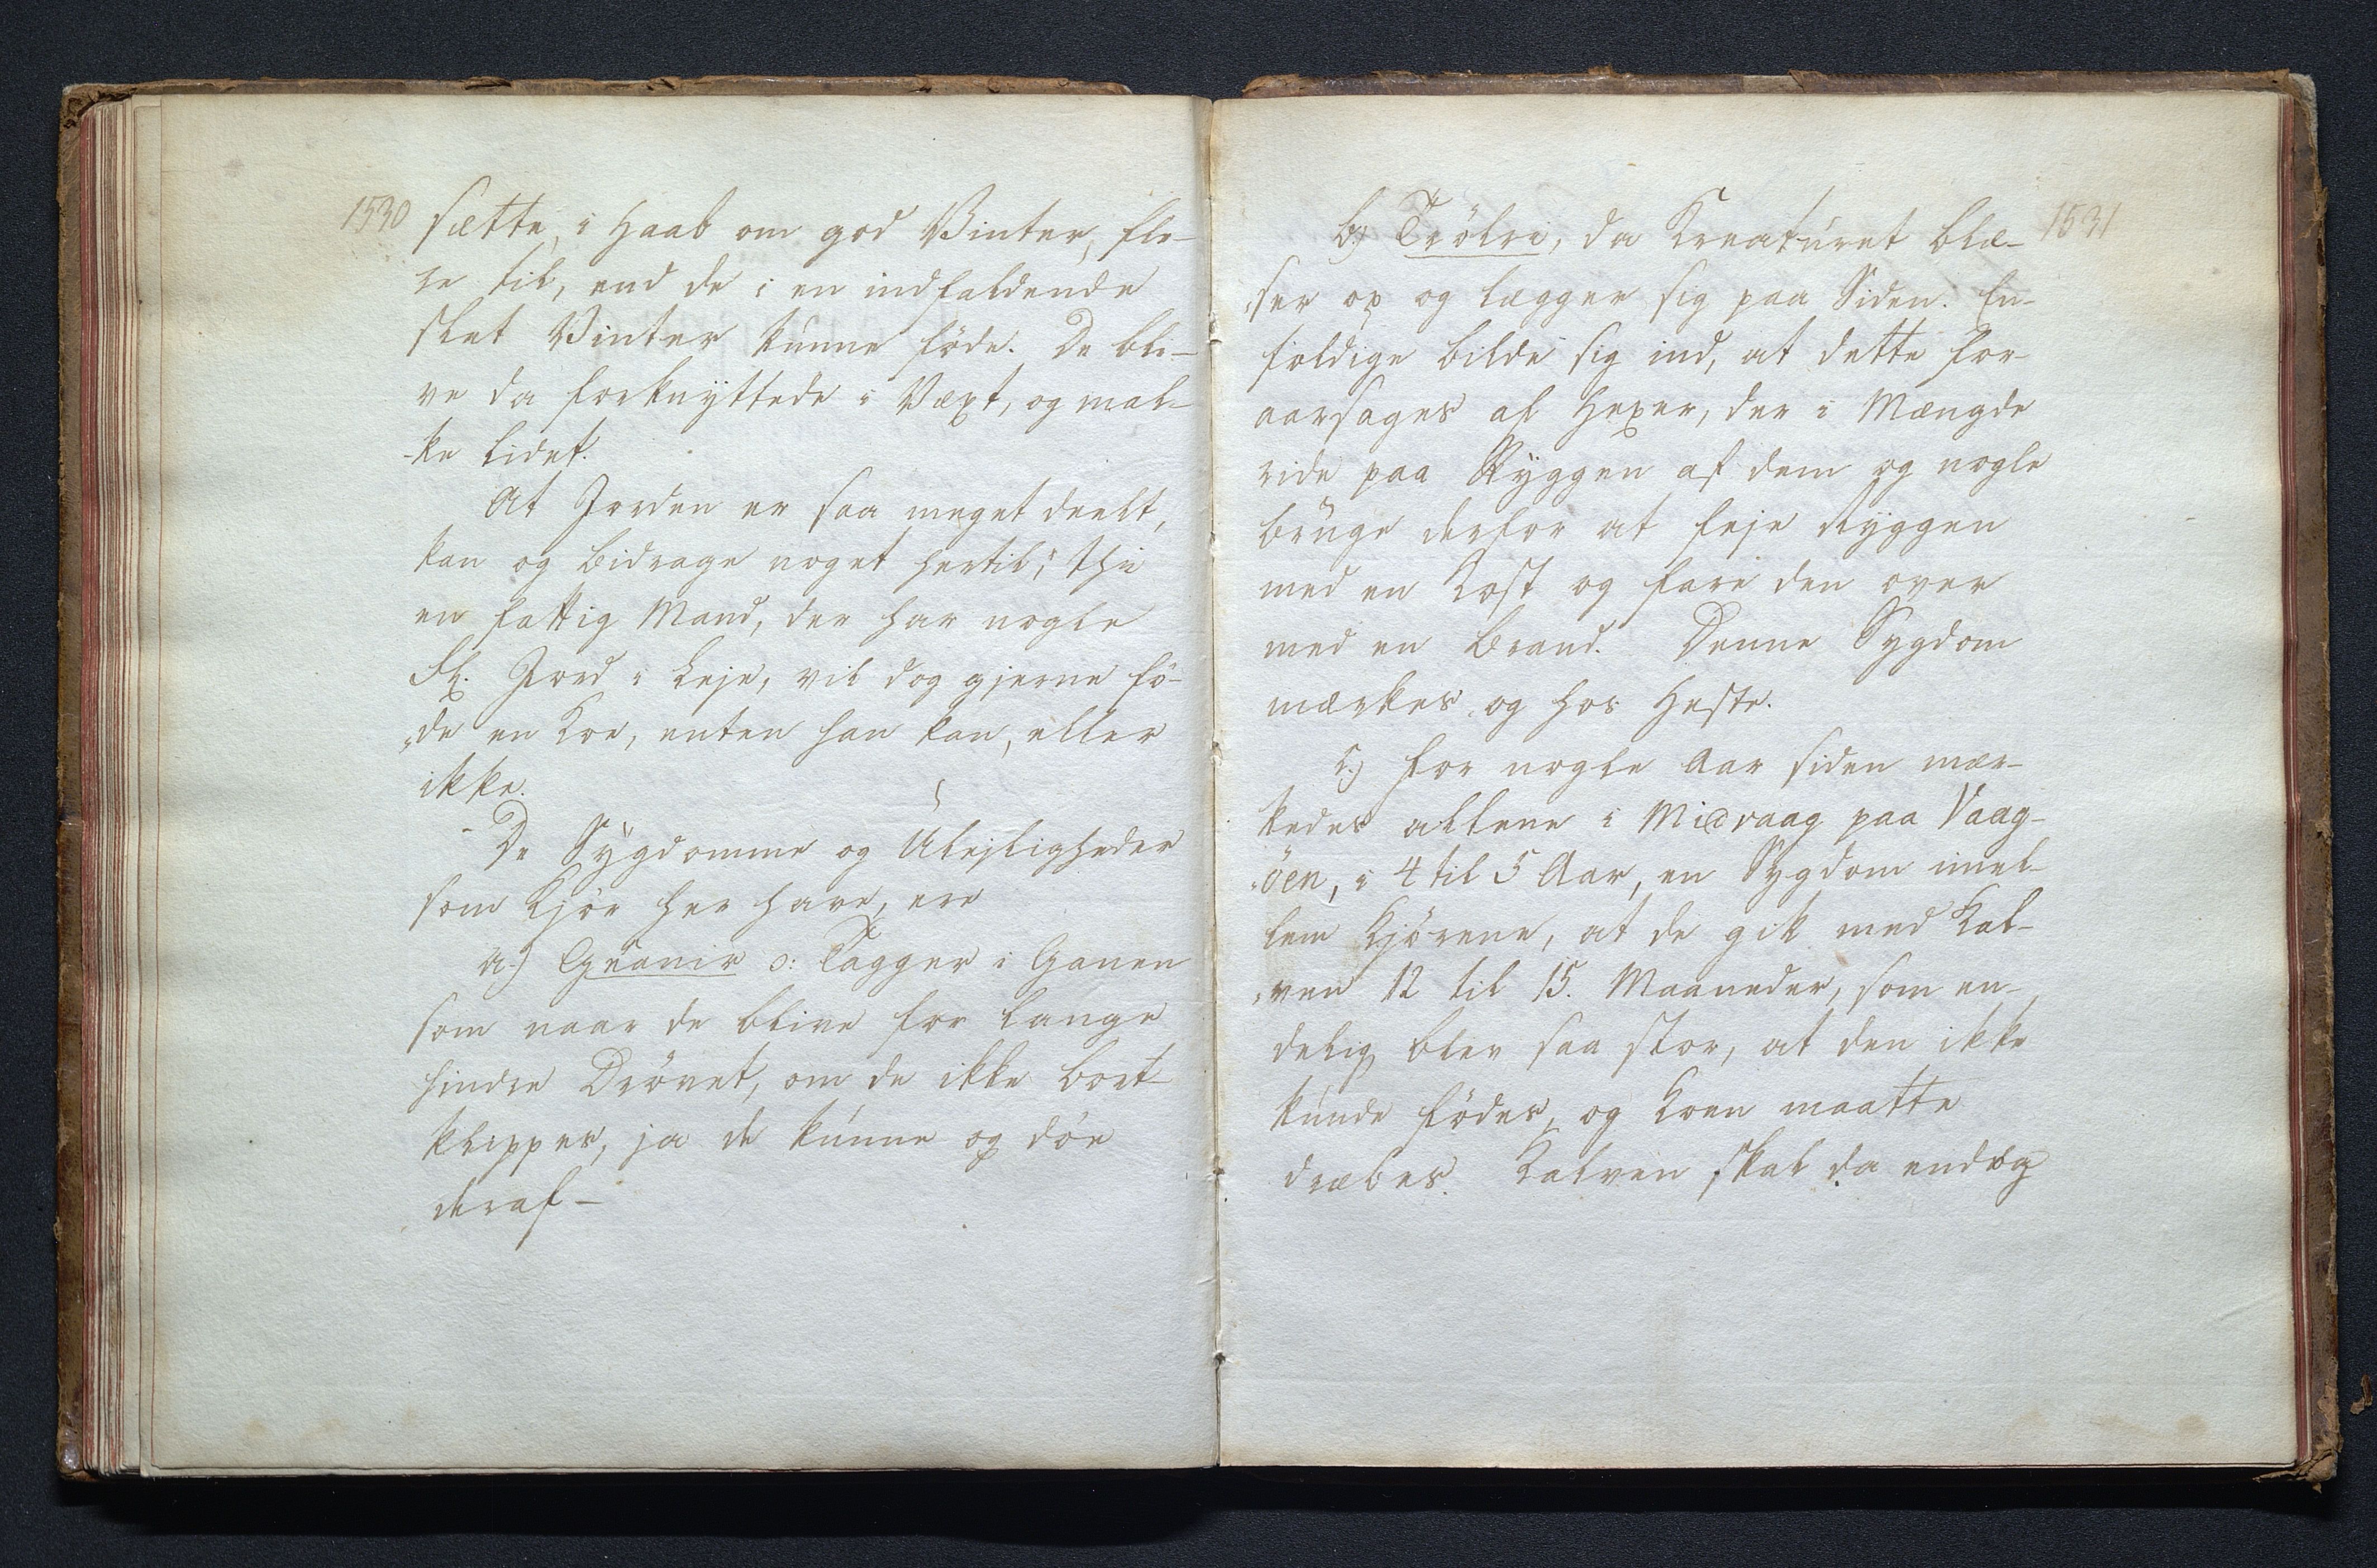 1530
sætte, i Haab om god Vinter, fle-
re til, end de i en indfaldende
slet Vinter kunne föde. De bli-
ve da forknyttede i Væxt, og mal-
-ke lidet.
At Jorden er saa meget deelt,
kan og bidrage noget hertil; thi
en fattig Mand, der har nogle
Sk. Jord i Leje, vil dog gjerne fö-
-de en Koe, enten han kan, eller
ikke.
De Sygdomme og Ulejligheder
som Kjör her have, ere
a.) Gnanir ɔ: Tagger i Ganen
som naar de blive for lange
hindre Drövet, om de ikke bort-
klippes, ja de kunne og döe
deraf-
1531
b.) Trölri, da Kreaturet blæ-
-ser op og lægger sig paa Siden. En-
foldige bilde sig ind, at dette for-
aarsages af Hexer, der i Mængde
ride paa Ryggen af dem og nogle
bruge derfor at feje Ryggen
med en Kost og fare den over
med en Brand. Denne Sygdom
mærkes og hos Heste.
c.) For nogle Aar siden mær-
kedes allene i Midvaag paa Vaag-
-öen, i 4 til 5 Aar, en Sygdom imel-
lem Kjörene, at de gik med Kal-
-ven 12 til 15. Maaneder, som en-
delig blev saa stor, at den ikke
kunde födes, og Koen maatte
dræbes. Kalven skal da endog